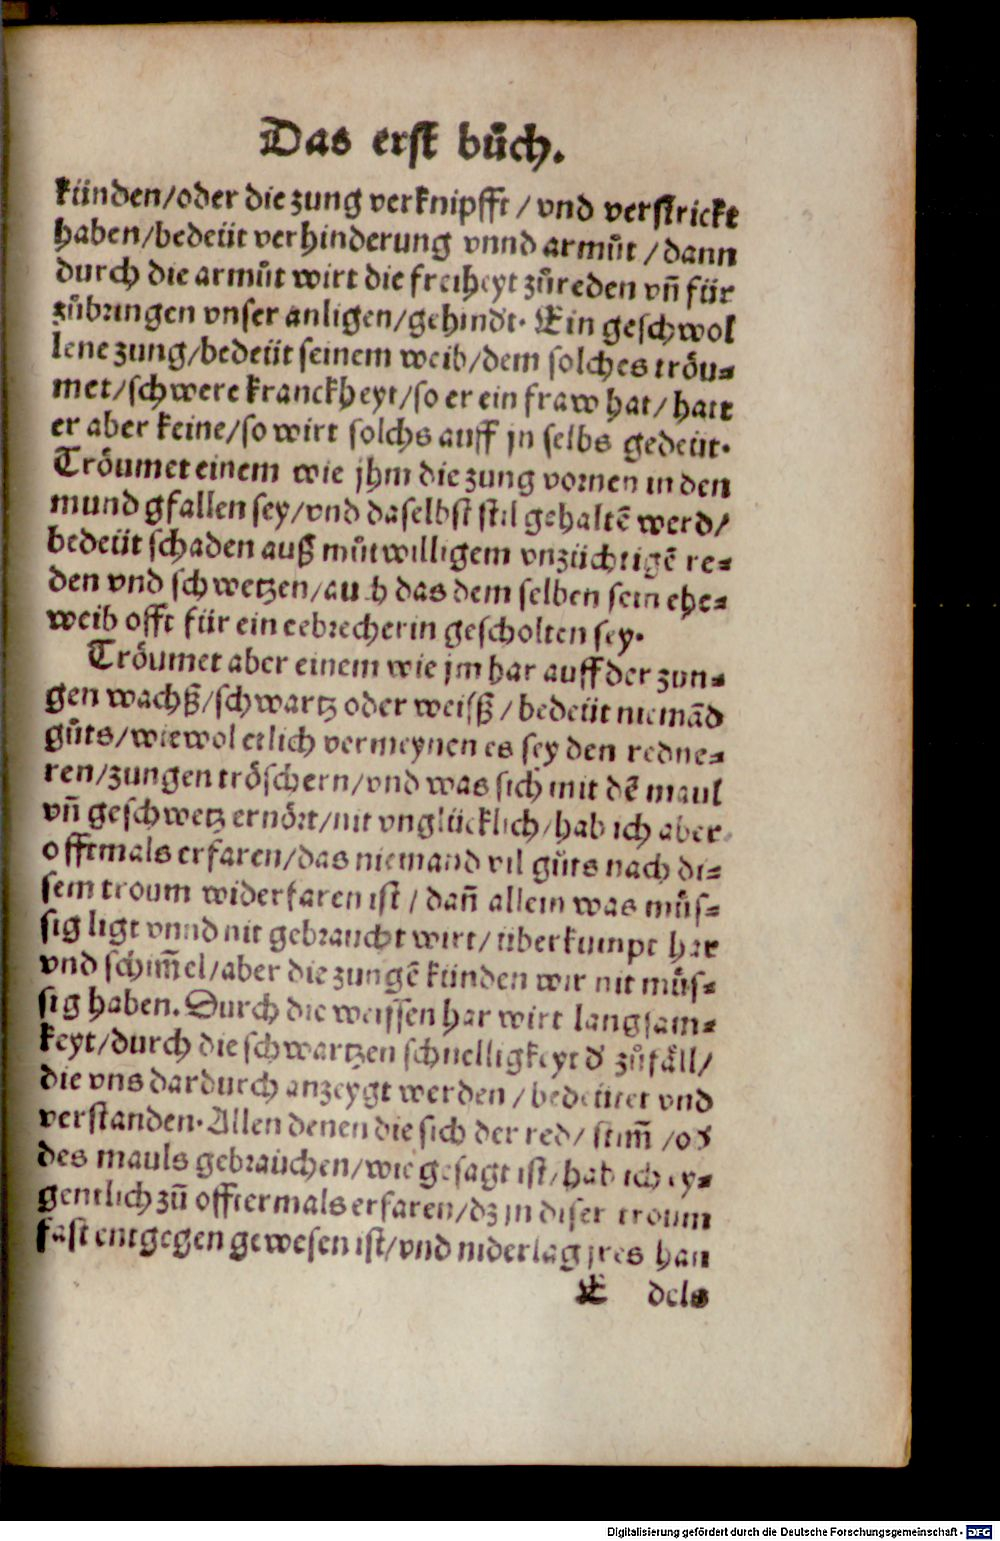 Das erst bůch.
künden/oder die zung verknipfft / vnd verstrickt
haben/bedeüt verhinderung vnnd armůt / dann
durch die armůt wirt die freiheyt zůreden vñ für
zůbringen vnser anligen/gehindt. Ein geschwol
lene zung/bedeüt seinem weib/dem solches tröu⸗
met/schwere kranckheyt/so er ein fraw hat/ hatt
er aber keine/so wirt solchs auff jn selbs gedeüt.
Tröumet einem wie jhm die zung vornen in den
mund gfallen sey/vnd daselbst stil gehaltẽ werd/
bedeüt schaden auß můtwilligem vnzüchtigẽ re⸗
den vnd schwetzen/auch das dem selben sein ehe⸗
weib offt für ein eebrecherin gescholten sey.
Tröumet aber einem wie jm har auff der zun⸗
gen wachß/schwartz oder weisß / bedeüt niemãd
gůts/wiewol etlich vermeynen es sey den redne⸗
ren/zungen tröschern/vnd was sich mit dẽ maul
vñ geschwetz ernört/nit vnglücklich/hab ich aber
offtmals erfaren/das niemand vil gůts nach di⸗
sem troum widerfaren ist / dañ allein was můs⸗
sig ligt vnnd nit gebraucht wirt/ überkumpt har
vnd schim̃el/aber die zungẽ künden wir nit můs⸗
sig haben. Durch die weissen har wirt langsam⸗
keyt/durch die schwartzen schnelligkeyt d' zůfäll/
die vns dardurch anzeygt werden / bedeütet vnd
verstanden. Allen denen die sich der red/ stim̃ /od'
des mauls gebrauchen/wie gesagt ist/hab ich ey⸗
gentlich zů offtermals erfaren/dz jn diser troum
fast entgegen gewesen ist/vnd niderlag jres han
E dels
Digitalisierung gefördert durch die Deutsche Forschungsgemeinschaft - DFG